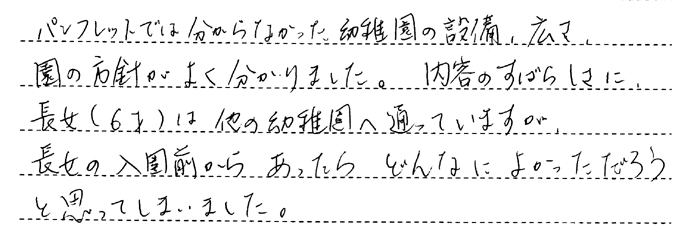 パンフレットでは分からなかった幼稚園の設備、広さ、
園の方針がよく分かりました。 内容のすばらしさに、
長女(6才)は他の幼稚園へ通っていますが、
長女の入園前から あったら どんなに よかっただろう
と思ってしまいました。